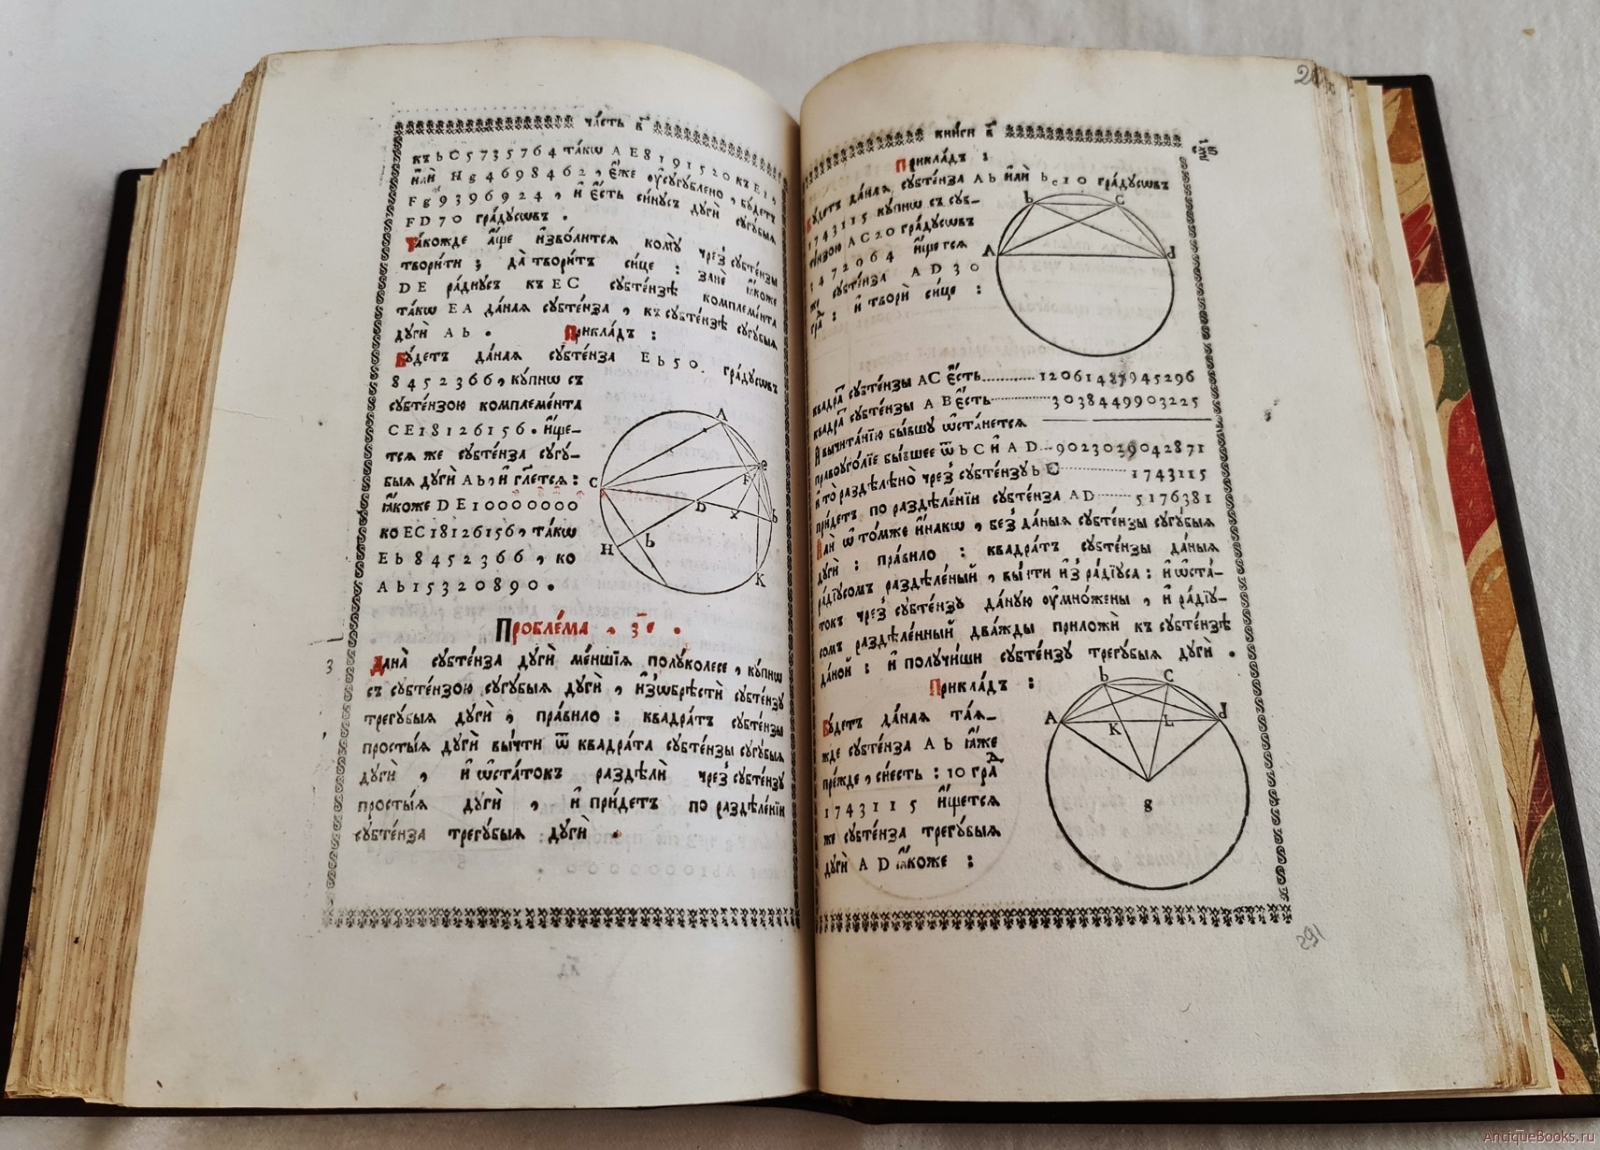 ча́сть в҃
къ b C 5 7 3 5 7 6 4 та́кѡ A E 8 1 9 1 5 2 0 къ E I ,
и҆лѝ H g 4 6 9 8 4 6 2 , є҆́же ᲂу҆сугублено , бу́детъ
F g 9 3 9 6 9 2 4 , и҆ є҆́сть си́нусъ дугѝ сугу́быѧ
F D 7 0 гра́дусѡвъ .
Та́кожде а҆́ще и҆зво́литсѧ кому̀ чрез̾ субте́нзы
твори́ти ; да̀ твори́тъ си́це : занѐ ꙗ҆́коже
D E ра́диусъ къ E C субте́нзѣ комплеме́нта
та́кѡ E A да́наѧ субте́нза , къ субте́нзѣ сугу́быѧ
дугѝ A b . Прикла́дъ :
Бу́детъ да́наѧ субте́нза E b 5 0 . гра́дусѡвъ
8 4 5 2 3 6 6 , ку́пнѡ съ
субте́нзою комплеме́нта
C E 1 8 1 2 6 1 5 6 . и҆́ще-
тсѧ же субте́нза сугу-
быѧ дугѝ A b , и҆ гл҃етсѧ :
ꙗ҆́коже D E 1 0 0 0 0 0 0 0
ко E C 1 8 1 2 6 1 5 6 , та́кѡ
E b 8 4 5 2 3 6 6 , ко
A b 1 5 3 2 0 8 9 0 .
A
e
C
F
D
x
b
H
b
K
Пробле́ма , 3 .
3
Дана̀ субте́нза дугѝ ме́ншїѧ полуколесе , ку́пнѡ
съ субте́нзою сугу́быѧ дугѝ , и҆зѡбрѣстѝ субте́нзу
трегу́быѧ дугѝ , пра́вило : квадра́тъ субте́нзы
просты́ѧ дугѝ вы́чти ѿ квадра́та субте́нзы сугу́быѧ
дугѝ , и҆ ѡ҆ста́токъ раздѣлѝ чрез̾ субте́нзу
просты́ѧ дугѝ , и҆ прїи́детъ по раздѣле́нїи
субте́нза трегу́быѧ дугѝ .
кни́ги в҃
Прикла́дъ :
Бу́детъ да́наѧ субте́нза A b и҆лѝ b c 1 0 гра́дусѡвъ
1 7 4 3 1 1 5 ку́пнѡ съ суб-
те́нзою A C 2 0 гра́дусѡвъ
3 4 7 2 9 6 4 и҆́щетсѧ
же субте́нза A D 3 0
гра̀ : и҆ творѝ си́це :
b C
A d
квадра̀ субте́нзы A C є҆́сть 12061487945296
квадра̀ субте́нзы A B є҆́сть 3038449903225
А вычита́нїю бы́вшу ѡ҆ста́нетсѧ
правоуго́лїе бы́вшее ѿ b C и҆ A D 9023029042871
и҆ то̀ раздѣле́но чрез̾ субте́нзу b C 1743115
прїи́детъ по раздѣле́нїи субте́нза A D 5176381
И҆лѝ ѡ҆ то́мже и҆на́кѡ , без̾ да́ныѧ субте́нзы сугу́быѧ
дугѝ : пра́вило : квадра́тъ субте́нзы да́ныѧ
ра́дїусомъ раздѣле́ный , вы́чти и҆з̾ ра́дїуса : и҆ ѡ҆ста́-
токъ чрез̾ субте́нзу да́ную ᲂу҆мно́жены , и҆ ра́дїу-
сомъ раздѣле́нный два́жды приложѝ къ субте́нзѣ
да́ной : и҆ получи́ши субте́нзу трегу́быѧ дугѝ .
Прикла́дъ :
b C
A d
K L
g
Бу́детъ да́наѧ та́ѧ-
жде субте́нза A b ꙗ҆́же
пре́жде , сиесть : 10 гра̀
1 7 4 3 1 1 5 и҆́щетсѧ
же субте́нза трегу́быѧ
дугѝ A D ꙗ҆́коже :
291
AnciqueBooks.ru